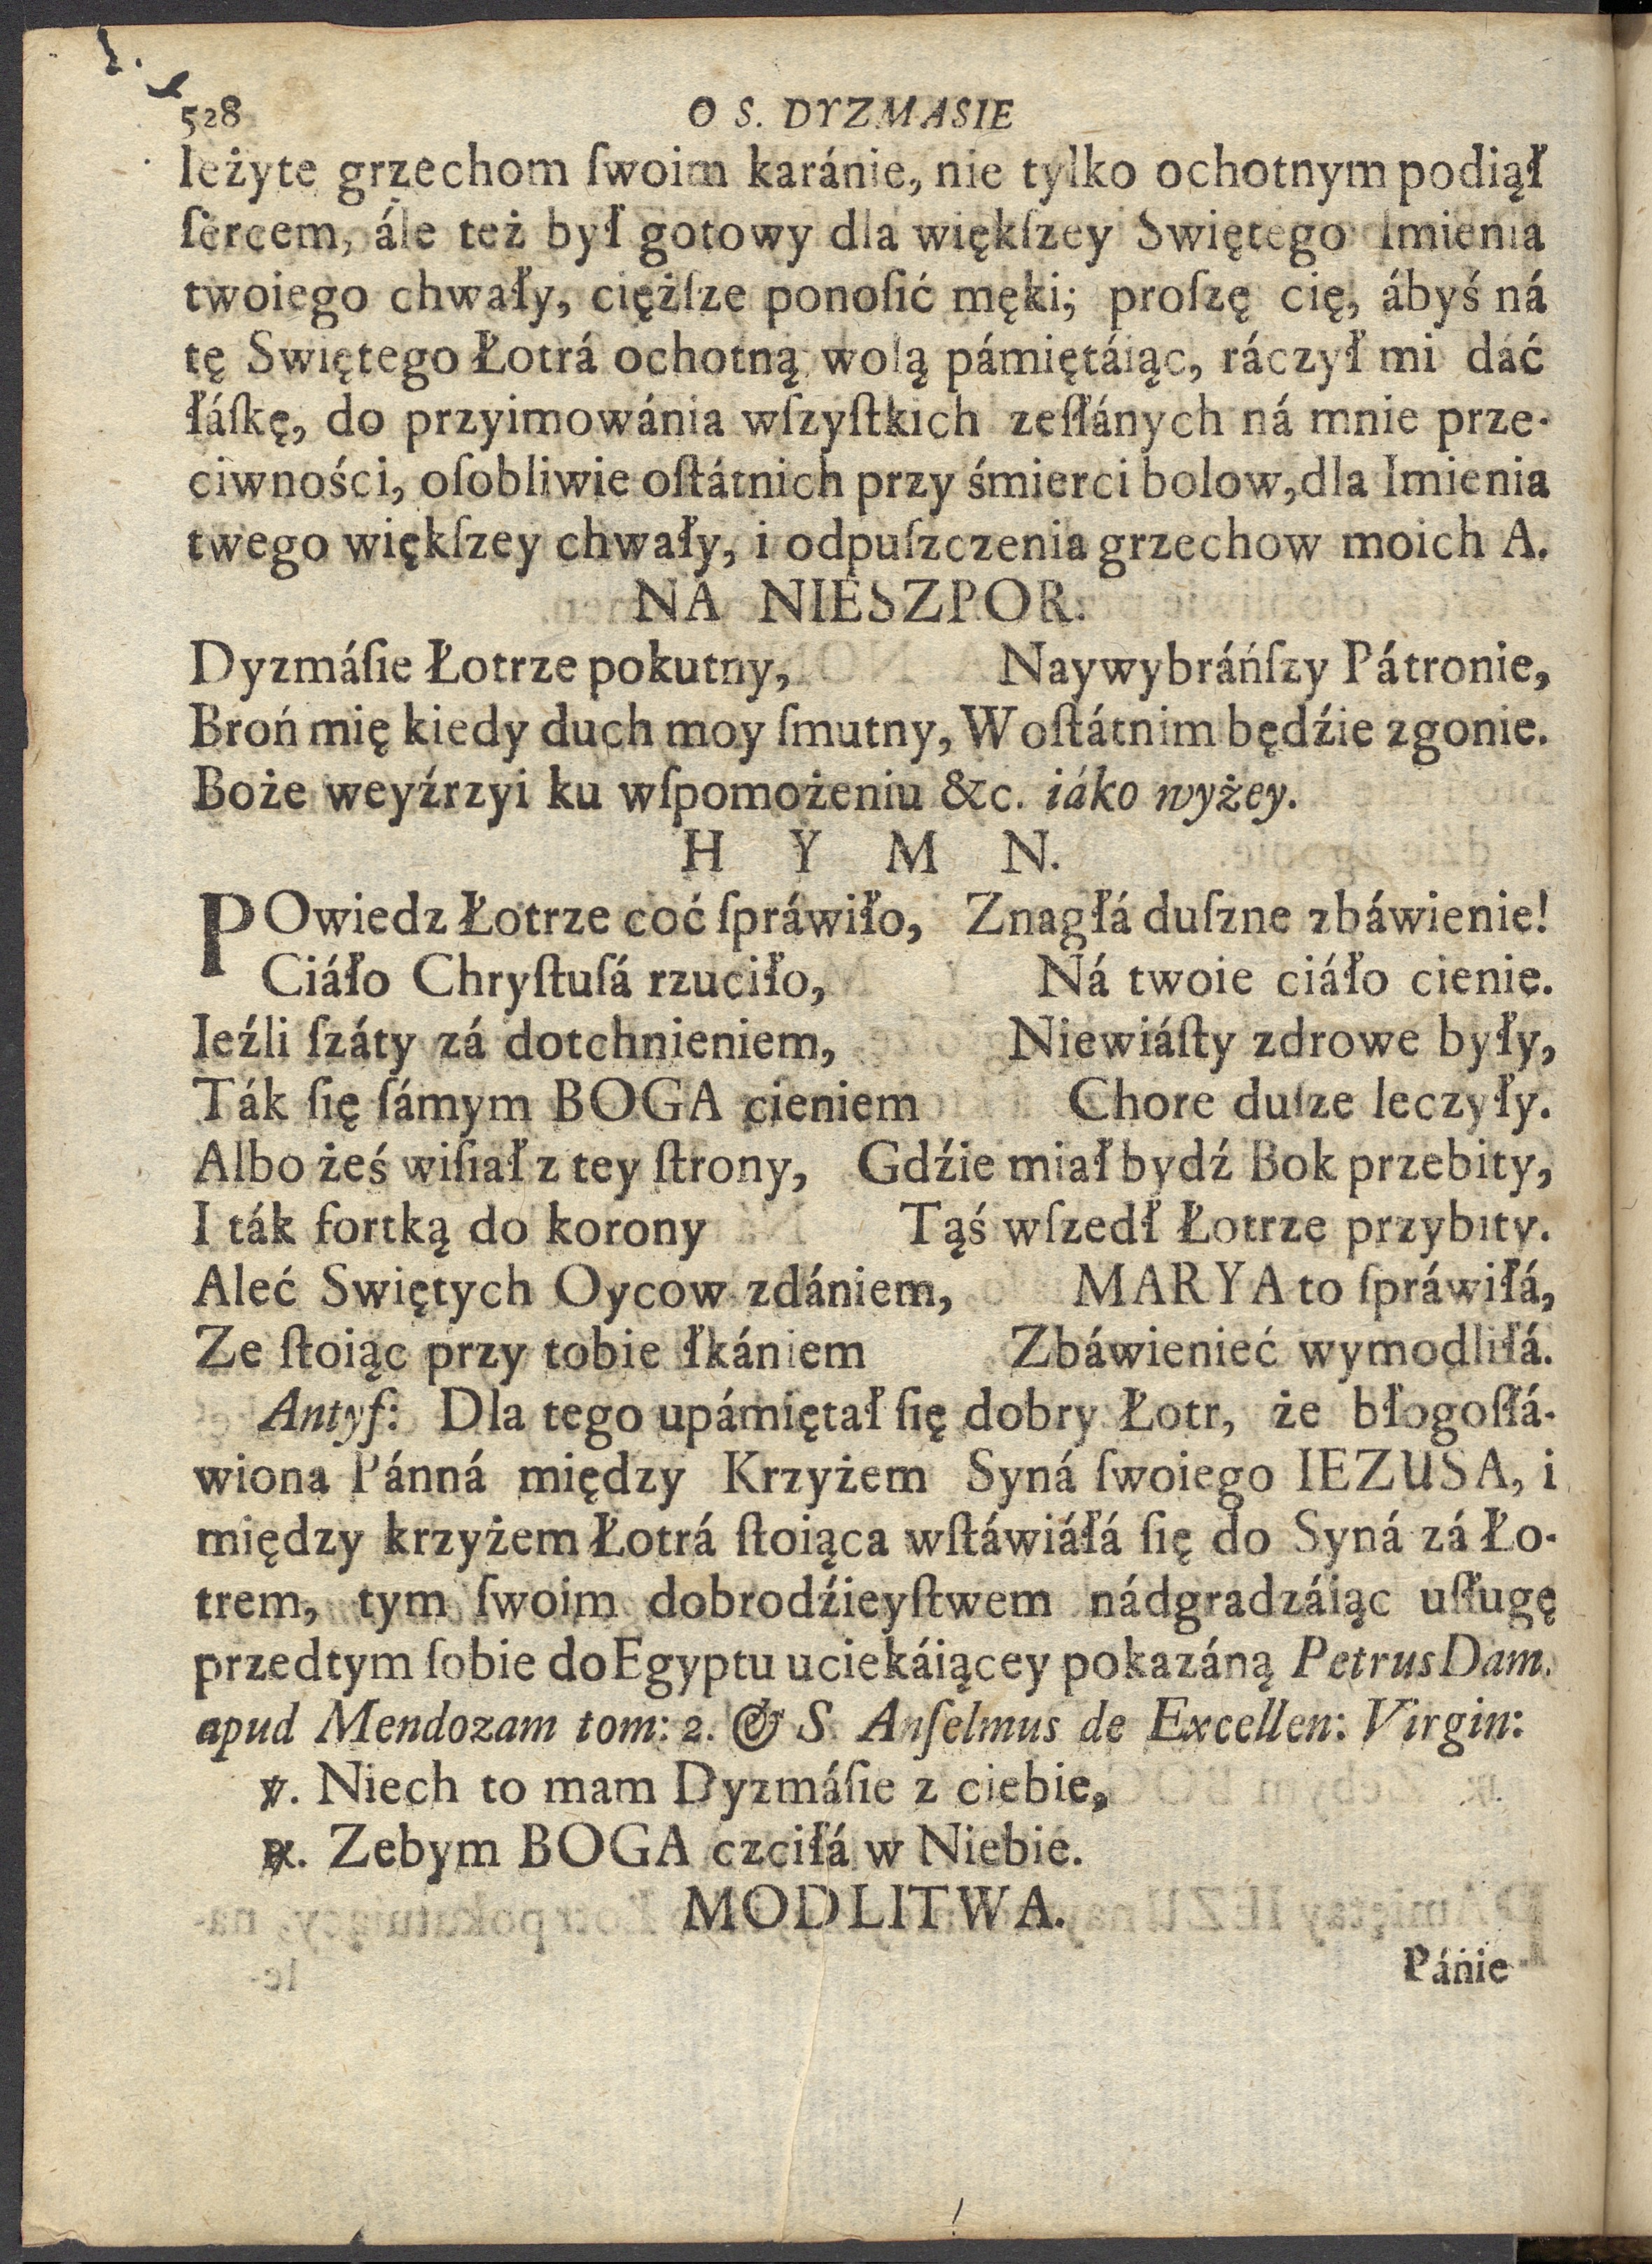 528 O S. DYZMASIE
leżyte grzechom ſwoim karánie, nie tylko ochotnym podiął
ſercem, ále też był gotowy dla więkſzey Swiętego Imienia
twoiego chwały, ciężſze ponoſić męki; proſzę cię, ábyś ná
tę Swiętego Łotrá ochotną wolą pámiętáiąc, ráczył mi dáć
łáſkę, do przyimowánia wſzyſtkich zeſłánych ná mnie prze-
ciwności, oſobliwie oſtátnich przy śmierci bolow, dla Imienia
twego więkſzey chwały, i odpuſzczenia grzechow moich A.
NA NIESZPOR.
Dyzmáſie Łotrze pokutny, Naywybráńſzy Pátronie,
Broń mię kiedy duch moy ſmutny, W oſtátnim będźie zgonie.
Boże weyźrzyi ku wſpomożeniu &c. iáko wyżey.
H Y M N.
POwiedz Łotrze coć ſpráwiło, Znagłá duſzne zbáwienie!
Ciáło Chryſtuſá rzuciło, Ná twoie ciáło cienie.
Ieźli ſzáty zá dotchnieniem, Niewiáſty zdrowe były,
Ták ſię ſámym BOGA cieniem Chore duſze leczyły.
Albo żeś wiſiał z tey ſtrony, Gdźie miał bydź Bok przebity,
I ták fortką do korony Tąś wſzedł Łotrze przybity.
Aleć Swiętych Oycow zdániem, MARYA to ſpráwiłá,
Ze ſtoiąc przy tobie łkániem Zbáwienieć wymodliłá.
Antyf: Dla tego upámiętał ſię dobry Łotr, że błogoſłá-
wiona Pánná między Krzyżem Syná ſwoiego IEZUSA, i
między krzyżem Łotrá ſtoiąca wſtáwiáłá ſię do Syná zá Ło-
trem, tym ſwoim dobrodźieyſtwem nádgradzáiąc uſługę
przedtym ſobie do Egyptu uciekáiącey pokazáną Petrus Dam.
apud Mendozam tom: 2. & S. Anſelmus de Excellen: Virgin:
℣. Niech to mam Dyzmáſie z ciebie,
℟. Zebym BOGA czciłá w Niebie.
MODLITWA.
Pánie